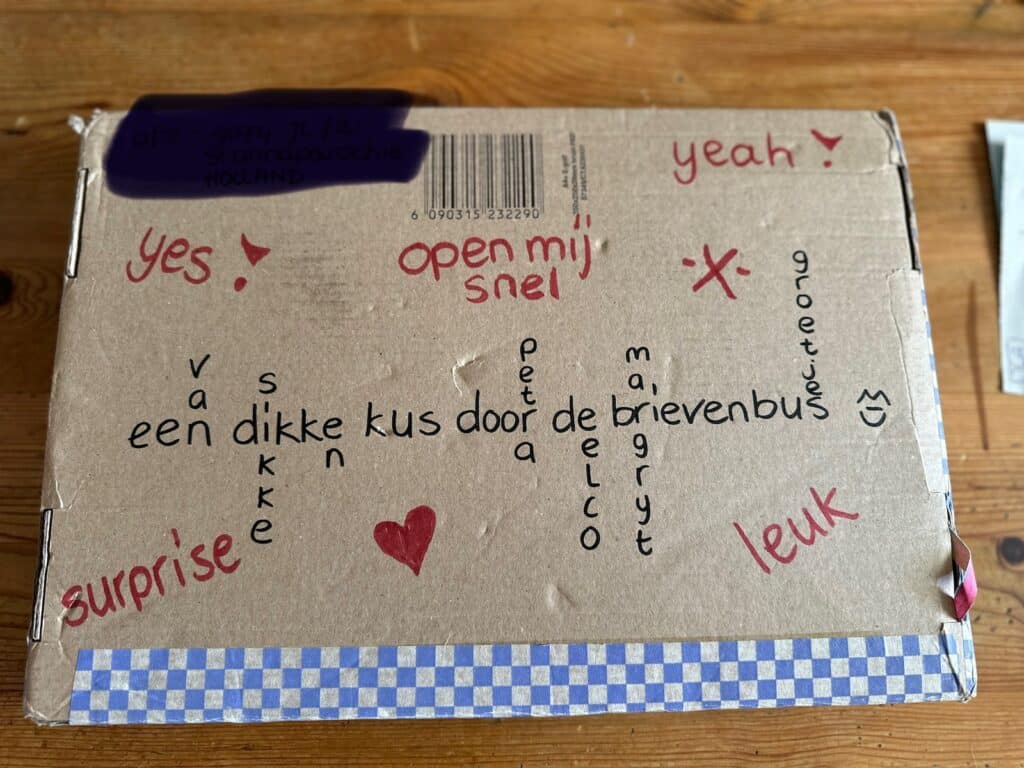 6 090315 232290
yeah !
yes !
open mij
snel
X
een dikke kus door de brievenbus
van
sikke
en
petra
eelco
margryt
groetjes
surprise
leuk